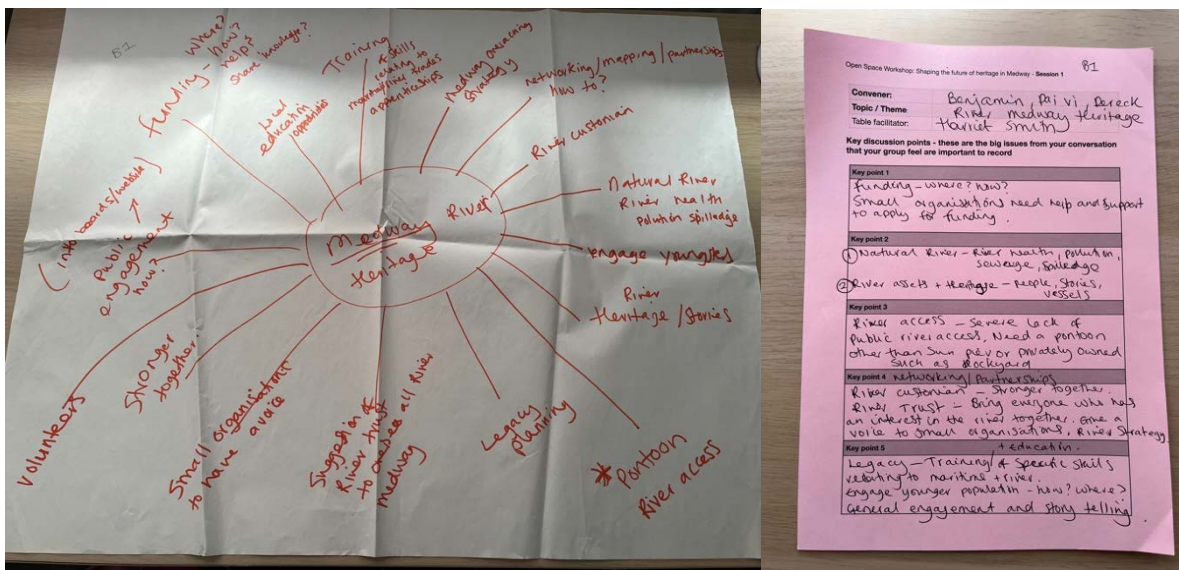 B1
funding - where?
how?
helps
share knowledge?
Local
education
opportunities
Training
& skills
relating to
maritime/river trades
apprenticeships
Medway overarching
strategy
networking/mapping/partnerships
how to?
River custodian
Natural River
River health
polution spilledge
engage youngsters
River
Heritage/Stories
* Pontoon
River access
Legacy
planning
Suggestion of
River trust
to oversee all River
medway
Small organisations
to have a voice
Stronger
together.
Volunteers
Public
engagement
how?
(info boards/website)
Medway River
Heritage
B1
Open Space Workshop: Shaping the future of heritage in Medway - Session 1
Convener: Benjamin, Paivi, Dereck
Topic / Theme River medway Heritage
Table facilitator: Harriet Smith
Key discussion points - these are the big issues from your conversation
that your group feel are important to record
Key point 1
funding - where? how?
Small organisations need help and support
to apply for funding.
Key point 2
① Natural River - River health, pollution,
sewage, spilledge
② River assets + Heritage - people, stories,
vessels
Key point 3
River access - Severe lack of
public river access, Need a pontoon
other than Sun pier or privately owned
such as Dockyard
Key point 4 networking/partnerships
River custodian - Stronger together.
River Trust - Bring everyone who has
an interest in the river together. Give a
voice to small organisations, River Strategy
Key point 5 + education -
Legacy - Training of specific skills
relating to maritime + river.
Engage younger population - how? where?
General engagement and story telling